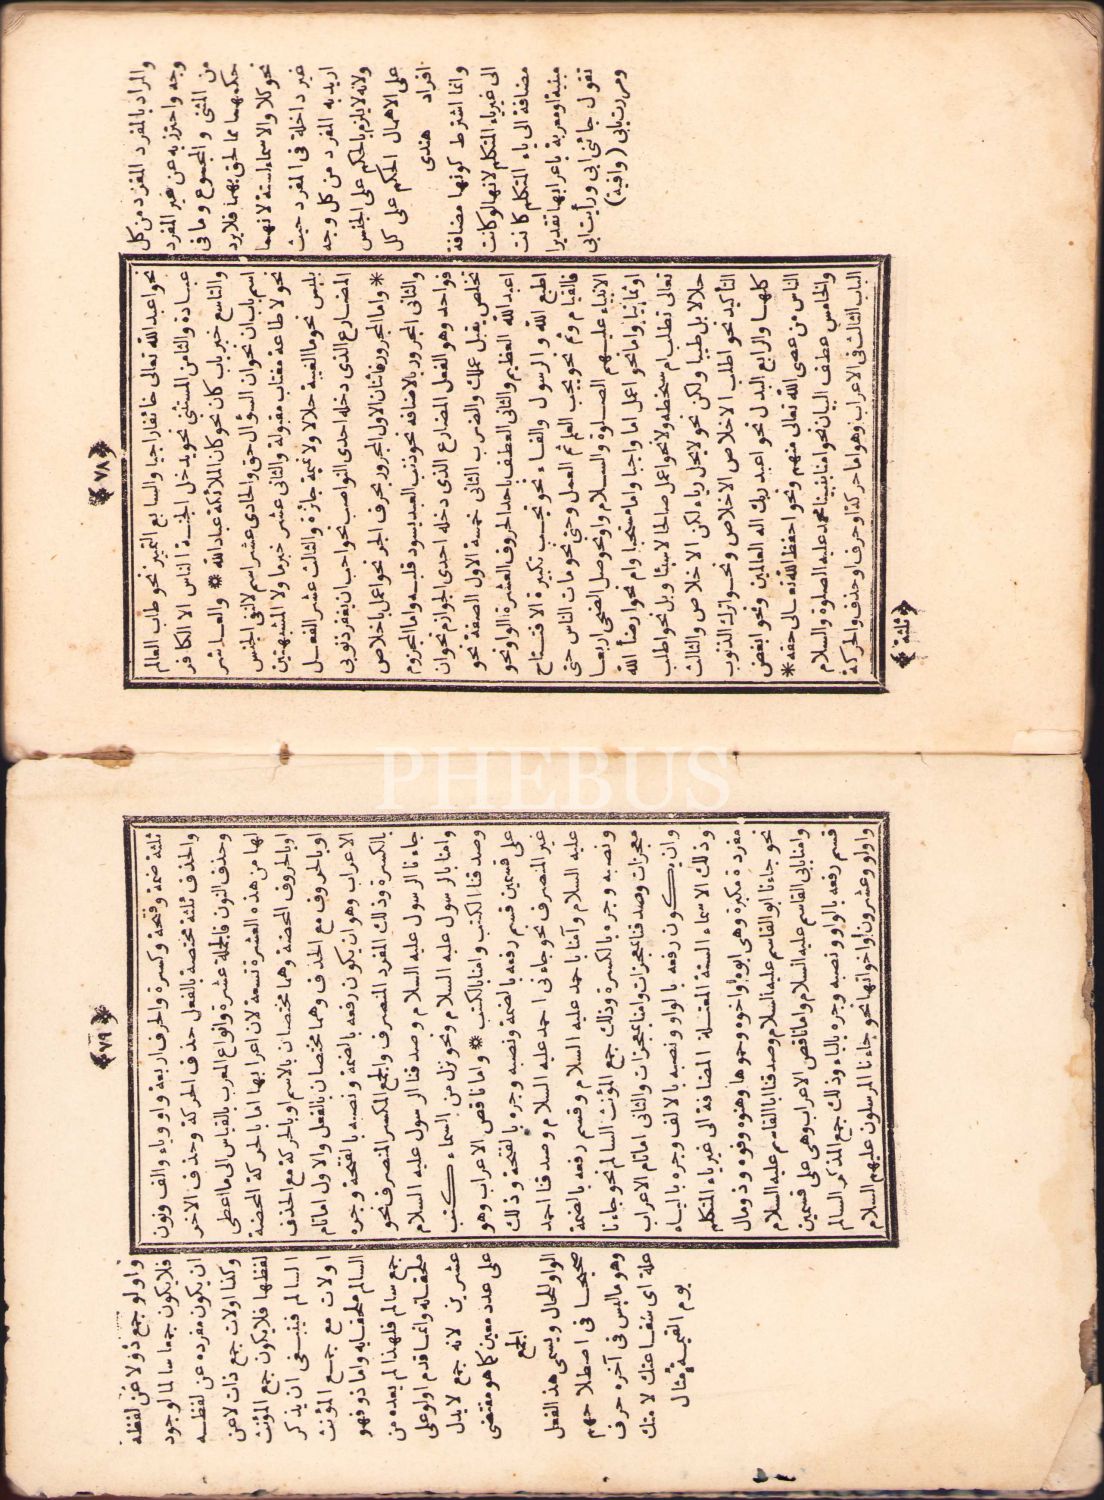 ﴿٧٨﴾
نحو اعبد الله تعالى خائفا راجيا والسابع التمييز نحو طاب العالم
عبادة والثامن المستثنى نحو يدخل الجنة الناس الا الكافر
والتاسع خبر باب كان نحو كان الملائكة عباد الله ❋ والعاشر
اسم باب ان نحو ان السؤال حق والحادى عشر اسم لا لنفى الجنس
نحو لا طاعة مغتاب مقبولة والثانى عشر خبر ما ولا المشبهتين
بليس نحو ما الغيبة حلالا ولا نميمة جائزة والثالث عشر الفعل
المضارع الذى دخله احدى النواصب نحو احب ان يغفر ذنوبى
❋ واما المجرور فاثنان الاول المجرور بحرف الجر نحو اعمل باخلاص
والثانى المجرور بالاضافة نحو ذنب العبد يسود قلبه واما المجزوم
فواحد وهو الفعل المضارع الذى دخله احدى الجوازم نحو ان
تخلص يقبل عملك والضرب الثانى خمسة الاول الصفة نحو
اعبد الله العظيم والثانى العطف باحد الحروف العشرة الواو نحو
اطيع الله والرسول والفاء نحو تجب تكبيرة الافتتاح
فالقيام وثم نحو يجب العلم ثم العمل وحتى نحو مات الناس حتى
الانبياء عليهم الصلوة والسلام واو نحو صل الضحى اربعا
او ثمانيا واما نحو اعمل اما واجبا واما مستحبا وام نحو ارضأ الله
تعالى تطلب ام سخطه ولا نحو اعمل صالحا لا سيئا وبل نحو اطلب
حلالا بل طيبا ولكن نحو لا يحل رياء لكن الاخلاص والثالث
التأكيد نحو اطلب الاخلاص الاخلاص ونحو اترك الذنوب
كلها والرابع البدل نحو اعبد ربك اله العالمين ونحو ابغض
الناس من عصى الله تعالى منهم ونحو احفظ الله تعالى حقه ❋
والخامس عطف البيان نحو امنا بنبينا محمد عليه الصلوة والسلام
الباب الثالث فى الاعراب وهو اما حركة او حرف او حذف والحركة
﴿ثلثة﴾
والمراد بالمفرد المفرد من كل
وجه واحترز به عن غير المفرد
من المثنى والمجموع وما فى
حكمهما مما لحق بهما فلا يرد
نحو كلا والاسماء الستة لانهما
غير داخلة فى المفرد حيث
اريد به المفرد من كل وجه
ولانه لا يلزم بالحكم على الجنس
على الاهمال الحكم على كل
افراد هندى
وانما اشترط كونها مضافة
الى غير ياء المتكلم لانها لو كانت
مضافة الى ياء المتكلم كانت
مبنية او معربة باعرابها تقديرا
تقول جائنى ابى ورأيت ابى
ومررت بابى (وافية)
﴿٧٩﴾
ثلثة ضمة وفتحة وكسرة والحرف اربعة واو وياء والف ونون
والحذف ثلثة مختصة بالفعل حذف الحركة وحذف الاخر
وحذف النون فالجملة عشرة وانواع المعرب بالقياس الى ما اعطى
لها من هذه العشرة تسعة لان اعرابها اما بالحركة المحضة
او بالحروف المحضة وهما مختصان بالاسم او بالحركة مع الحذف
او بالحروف مع الحذف وهما مختصان بالفعل والاول اما تام
الاعراب وهو ان يكون رفعه بالضمة ونصبه بالفتحة وجره
بالكسرة وذلك المفرد المنصرف والجمع المكسر المنصرف نحو
جاءنا الرسول عليه السلام وصدقنا الرسول عليه السلام
وامنا بالرسول عليه السلام ونحو نزل من السماء كتب
وصدقنا الكتب وامنا بالكتب ❋ واما ناقص الاعراب وهو
على قسمين قسم رفعه بالضمة ونصبه وجره بالفتحة وذلك
غير المنصرف نحو جاءنى احمد عليه السلام وصدقنا احمد
عليه السلام وآمنا باحمد عليه السلام وقسم رفعه بالضمة
ونصبه وجره بالكسرة وذلك جمع المؤنث السالم نحو جاءنا
معجزات وصدقنا معجزات وامنا بمعجزات والثانى اما تام الاعراب
وان يكون رفعه بالواو ونصبه بالالف وجره بالياء
وذلك الاسماء الستة المعتلة المضافة الى غير ياء المتكلم
مفردة مكبرة وهى ابوه واخوه وحموها وهنوه وفوه وذو مال
نحو جاءنا ابو القاسم عليه السلام وصدقنا ابا القاسم عليه السلام
وامنا بابى القاسم عليه السلام واما ناقص الاعراب وهى على قسمين
قسم رفعه بالواو ونصبه وجره بالياء وذلك جمع المذكر السالم
واولو وعشرون واخواتها نحو جاءنا المرسلون عليهم السلام
واولو جمع ذو لا عن لفظه
فلا يكون جمعا سالما لوجود
ان يكون مفرده عن لفظه
وكذا اولات جمع ذات لا عن
لفظها فلا يكون جمع المؤنث
السالم فينبغى ان يذكر
اولات مع جمع المؤنث
السالم ملحقا به واما ذو فهو
جمع سالم فلهذا لم يعده من
ملحقاته وانما قدم اولو على
عشرين لانه جمع لا يدل
على عدد معين كما هو مقتضى
الجمع
الواو للحال ويسمى هذا الفعل
صحيحا فى اصطلاحهم
وهو ما ليس فى آخره حرف
علة اى شفاعتك لا منك
يوم القيمة مثال